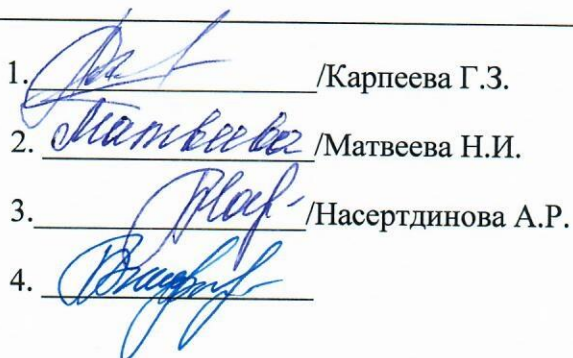 1. /Карпеева Г.З.
2. Матвеева /Матвеева Н.И.
3. /Насертдинова А.Р.
4.